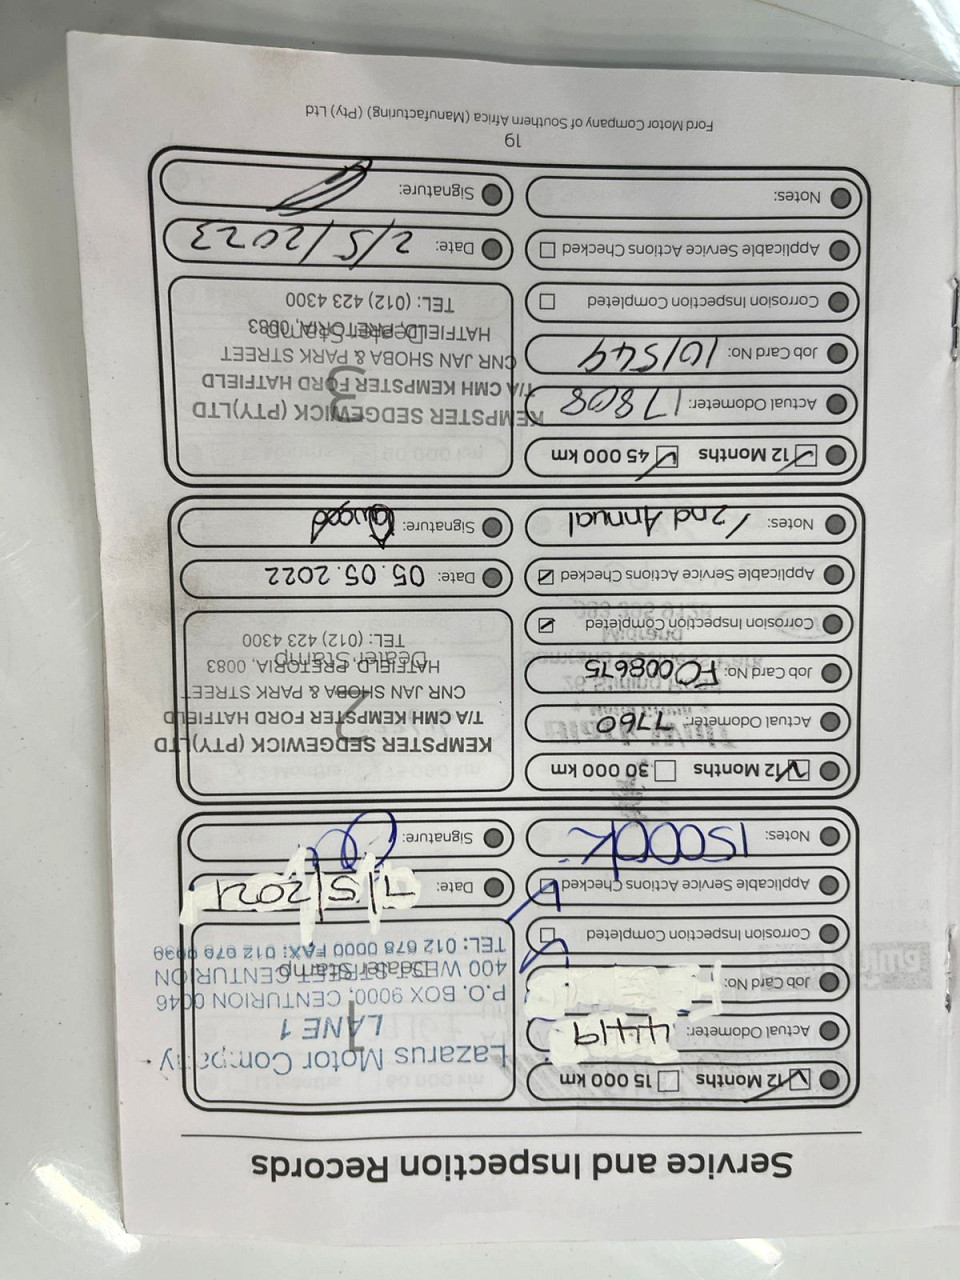 Service and Inspection Records
12 Months 15 000 km
Actual Odometer: 4419
Job Card No:
Corrosion Inspection Completed
Applicable Service Actions Checked
Notes: 15000K
1
Dealer Stamp
Lazarus Motor Company
LANE 1
P.O. BOX 9000, CENTURION 0046
TEL: 012 678 0000 FAX: 012 678
Date: 7/5/2021
Signature:
12 Months 30 000 km
Actual Odometer: 7760
Job Card No: FC008675
Corrosion Inspection Completed
Applicable Service Actions Checked
Notes: 2nd Annual
2
Dealer Stamp
KEMPSTER SEDGEWICK (PTY)LTD
T/A CMH KEMPSTER FORD HATFIELD
CNR JAN SHOBA & PARK STREET
HATFIELD, PRETORIA, 0083
TEL: (012) 423 4300
Date: 05.05.2022
Signature:
12 Months 45 000 km
Actual Odometer: 17808
Job Card No: 101544
Corrosion Inspection Completed
Applicable Service Actions Checked
Notes:
3
Dealer Stamp
KEMPSTER SEDGEWICK (PTY)LTD
T/A CMH KEMPSTER FORD HATFIELD
CNR JAN SHOBA & PARK STREET
HATFIELD, PRETORIA, 0083
TEL: (012) 423 4300
Date: 2/5/2023
Signature:
19
Ford Motor Company of Southern Africa (Manufacturing) (Pty) Ltd